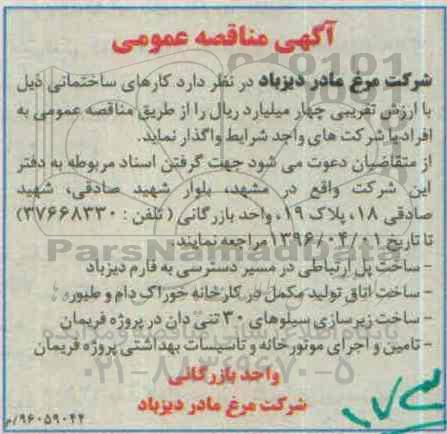 آگهی مناقصه عمومی
شرکت مرغ مادر دیزباد در نظر دارد کارهای ساختمانی ذیل
با ارزش تقریبی چهار میلیارد ریال را از طریق مناقصه عمومی به
افراد یا شرکت های واجد شرایط واگذار نماید.
از متقاضیان دعوت می شود جهت گرفتن اسناد مربوطه به دفتر
این شرکت واقع در مشهد، بلوار شهید صادقی، شهید
صادقی ۱۸، پلاک ۱۹، واحد بازرگانی (تلفن : ۳۷۶۶۸۳۳۰)
تا تاریخ ۱۳۹۶/۰۴/۰۱ مراجعه نمایند.
- ساخت پل ارتباطی در مسیر دسترسی به فارم دیزباد
- ساخت اتاق تولید مکمل در کارخانه خوراک دام و طیور
- ساخت زیرسازی سیلوهای ۳۰ تنی دان در پروژه فریمان
- تامین و اجرای موتورخانه و تاسیسات بهداشتی پروژه فریمان
واحد بازرگانی
شرکت مرغ مادر دیزباد
۹۶۰۵۹۰۴۴/م
ParsNamadData
۰۲۱-۸۸۳۴۹۶۷۰-۵